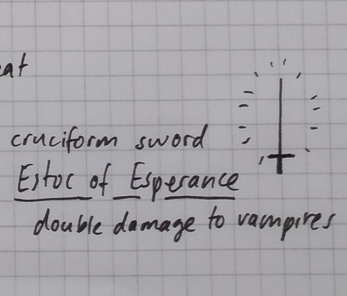 eat
cruciform sword
Estoc of Esperance
double damage to vampires